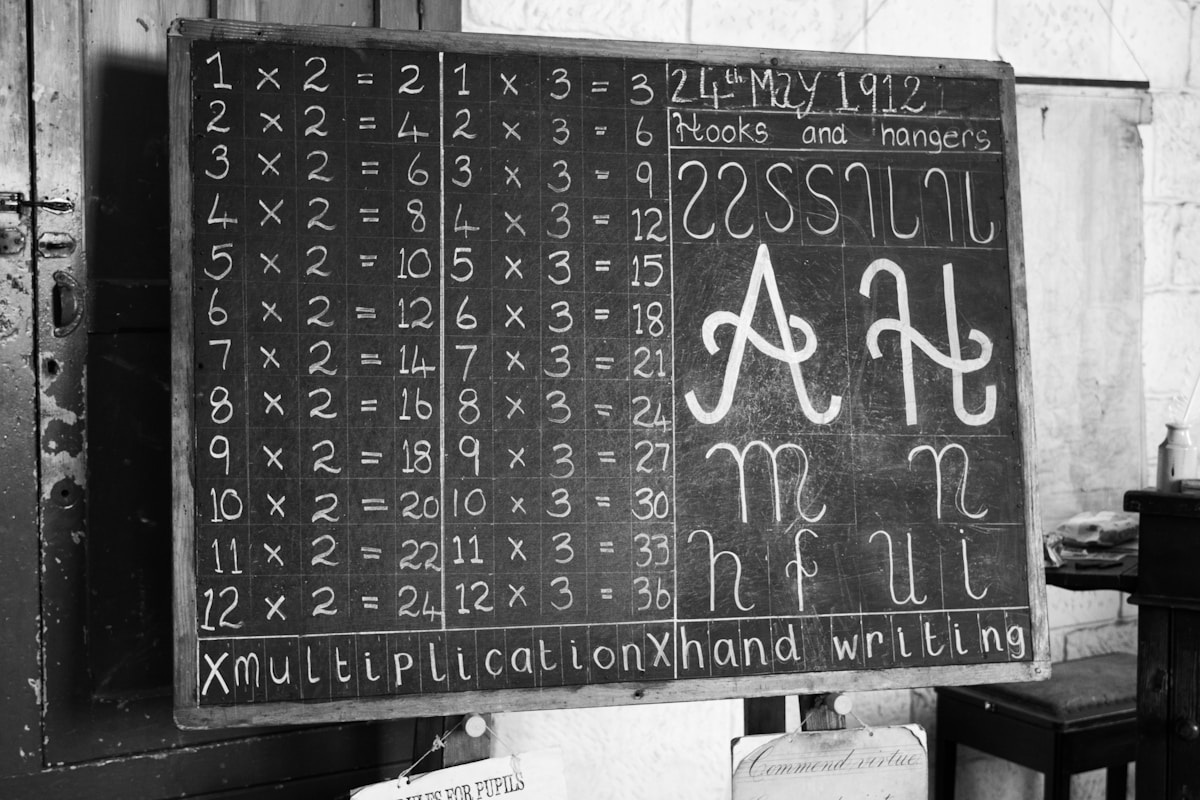 1 x 2 = 2
2 x 2 = 4
3 x 2 = 6
4 x 2 = 8
5 x 2 = 10
6 x 2 = 12
7 x 2 = 14
8 x 2 = 16
9 x 2 = 18
10 x 2 = 20
11 x 2 = 22
12 x 2 = 24
1 x 3 = 3
2 x 3 = 6
3 x 3 = 9
4 x 3 = 12
5 x 3 = 15
6 x 3 = 18
7 x 3 = 21
8 x 3 = 24
9 x 3 = 27
10 x 3 = 30
11 x 3 = 33
12 x 3 = 36
X multiplication X
24th May 1912
Hooks and hangers
A H
m n
h f u i
hand writing
FOR PUPILS
Commend virtue